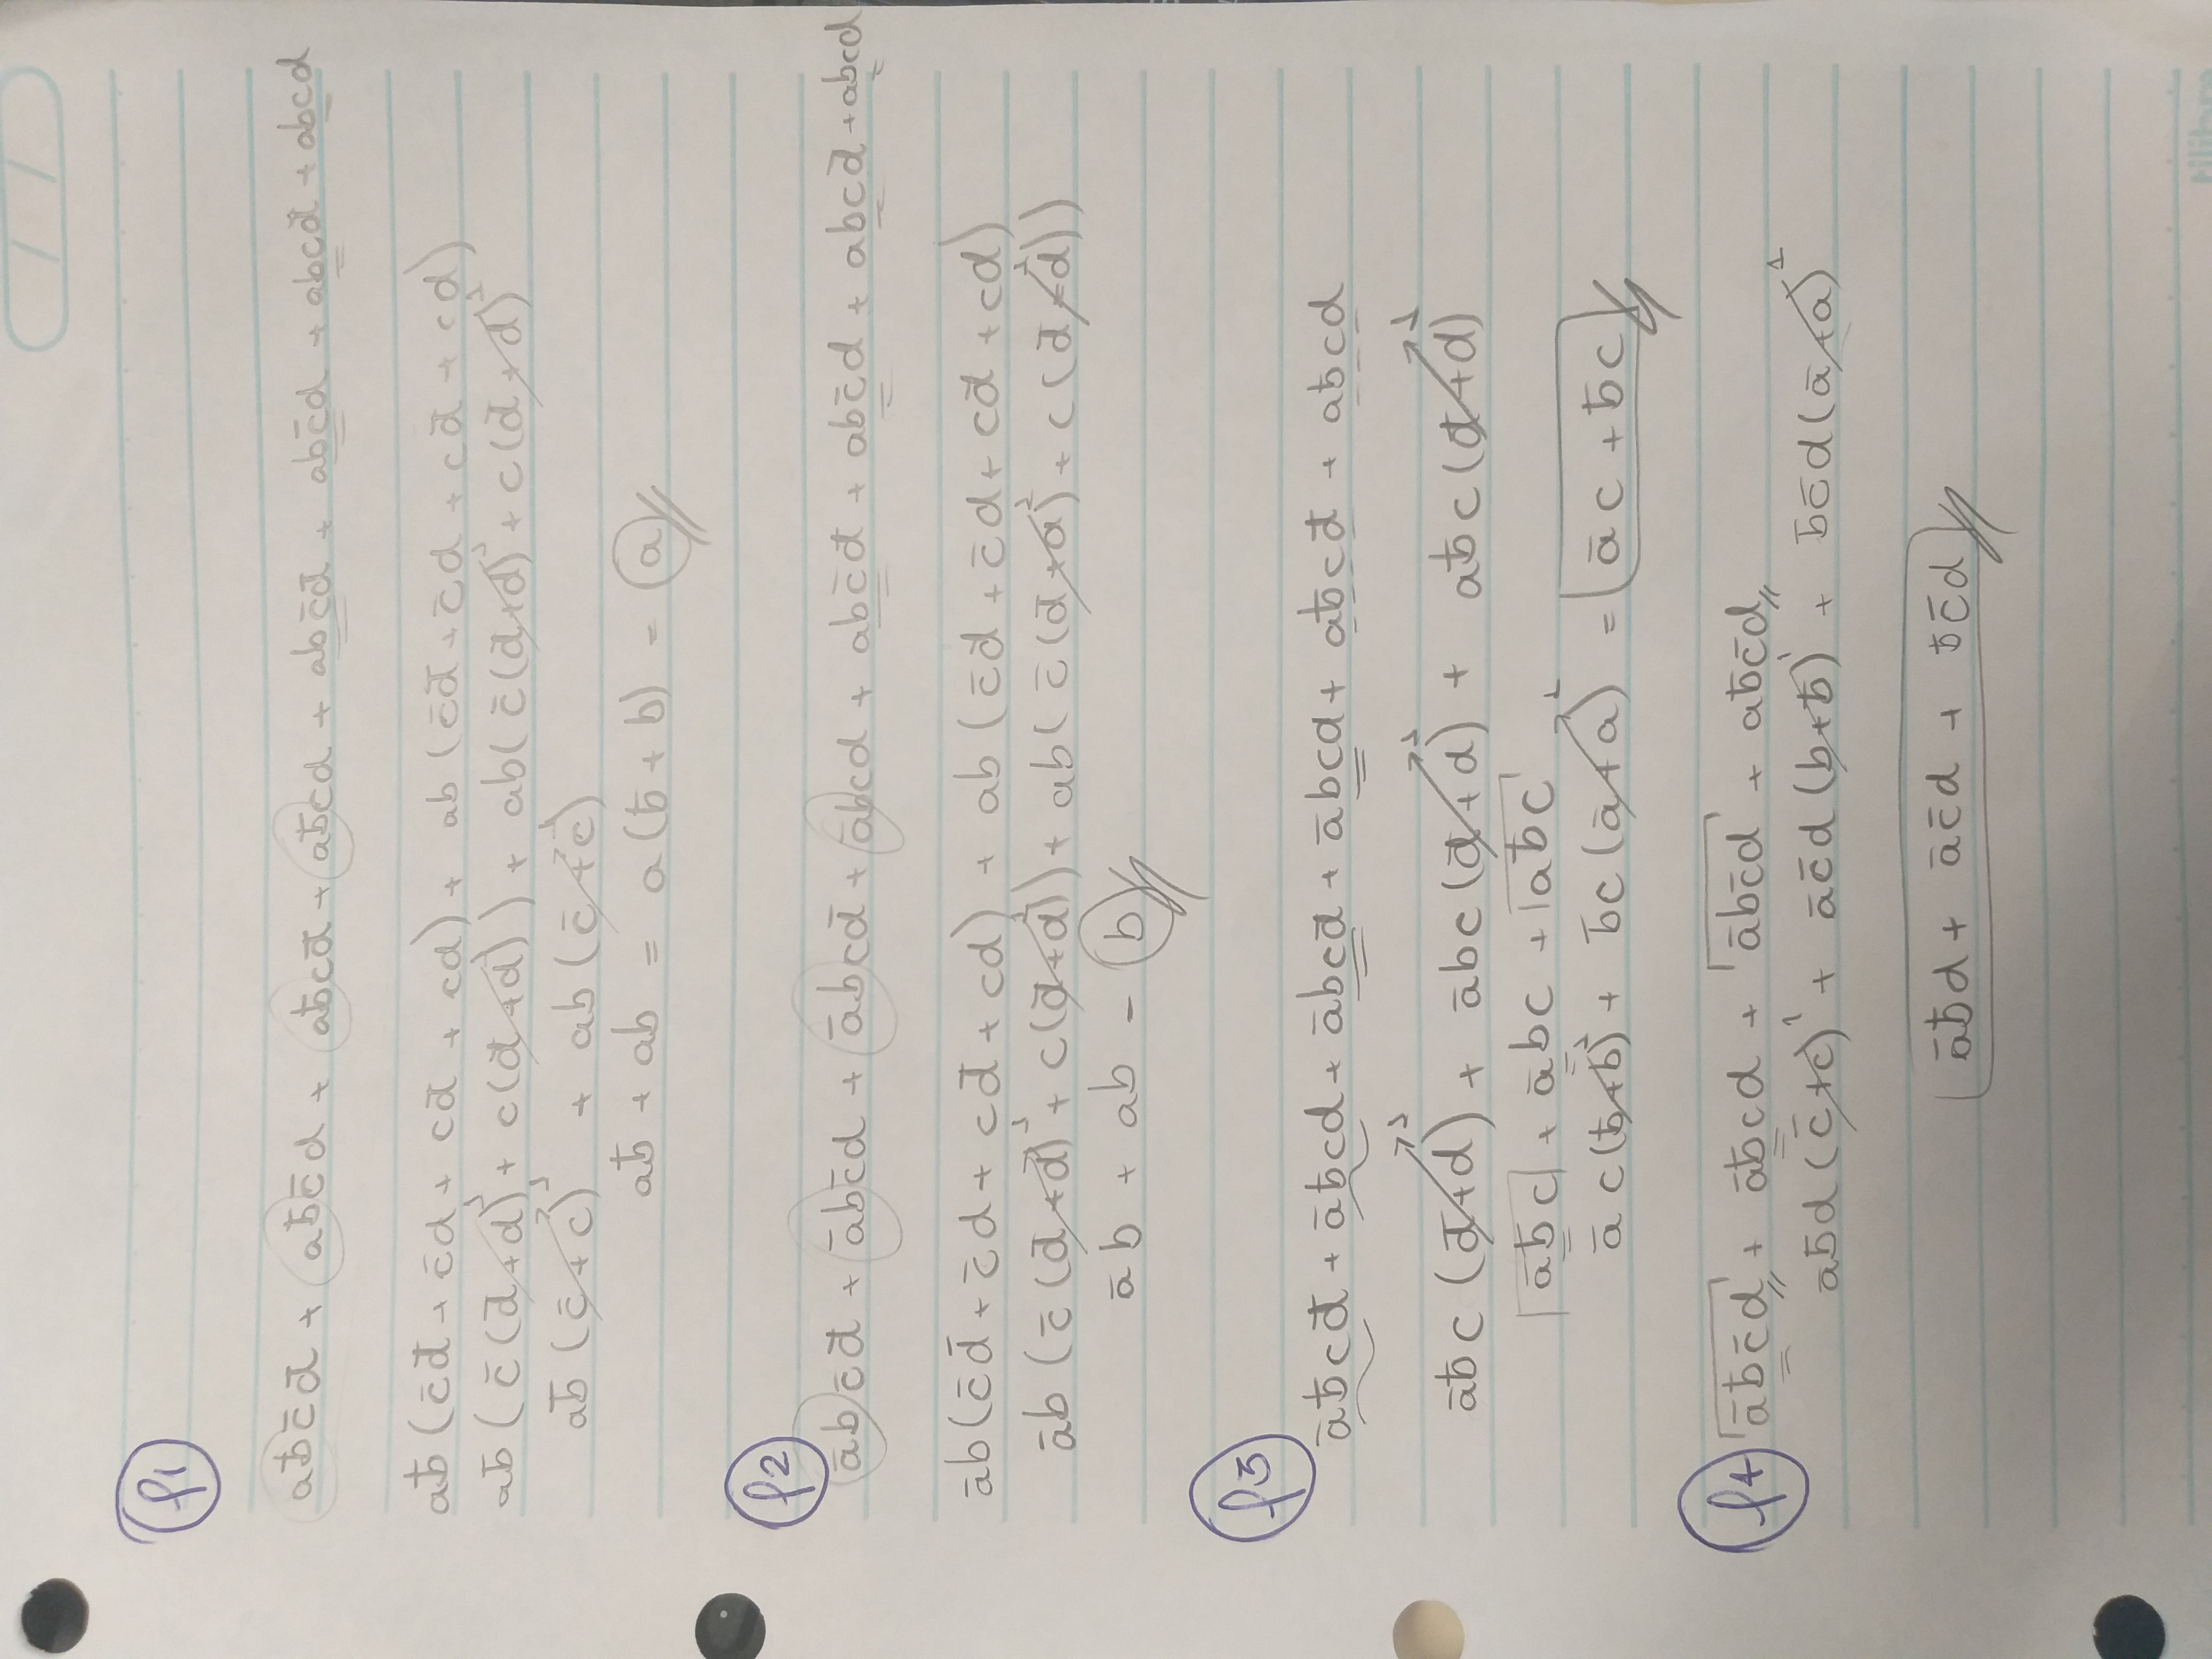 / /
f1
ab̄c̄d̄ + ab̄c̄d + ab̄cd̄ + ab̄cd + abc̄d̄ + abc̄d + abcd̄ + abcd
ab̄ (c̄d̄ + c̄d + cd̄ + cd) + ab (c̄d̄ + c̄d + cd̄ + cd)
ab̄ (c̄(d̄+d)¹ + c(d̄+d)) + ab(c̄(d̄+d)¹ + c(d̄+d)¹
ab̄ (c̄+c)¹ + ab (c̄+c)¹
ab̄ + ab = a(b̄ + b) = a
f2
ābc̄d̄ + ābc̄d + ābcd̄ + ābcd + abc̄d̄ + abc̄d + abcd̄ + abcd
āb(c̄d̄ + c̄d + cd̄ + cd) + ab (c̄d̄ + c̄d + cd̄ + cd)
āb (c̄(d̄+d)¹ + c(d̄+d)¹) + ab( c̄(d̄+d)¹ + c(d̄+d)¹)
āb + ab = b
f3
āb̄cd̄ + āb̄cd + ābcd̄ + ābcd + ab̄cd̄ + ab̄cd
āb̄c (d̄+d)¹ + ābc (d̄+d)¹ + ab̄c (d̄+d)¹
āb̄c + ābc + ab̄c
āc(b̄+b)¹ + b̄c(ā+a)¹ = āc + b̄c
f4 āb̄c̄d + āb̄cd + ābc̄d + ab̄c̄d
āb̄d (c̄+c)¹ + āc̄d (b+b̄)¹ + b̄c̄d(ā+a)¹
āb̄d + āc̄d + b̄c̄d
tilibra